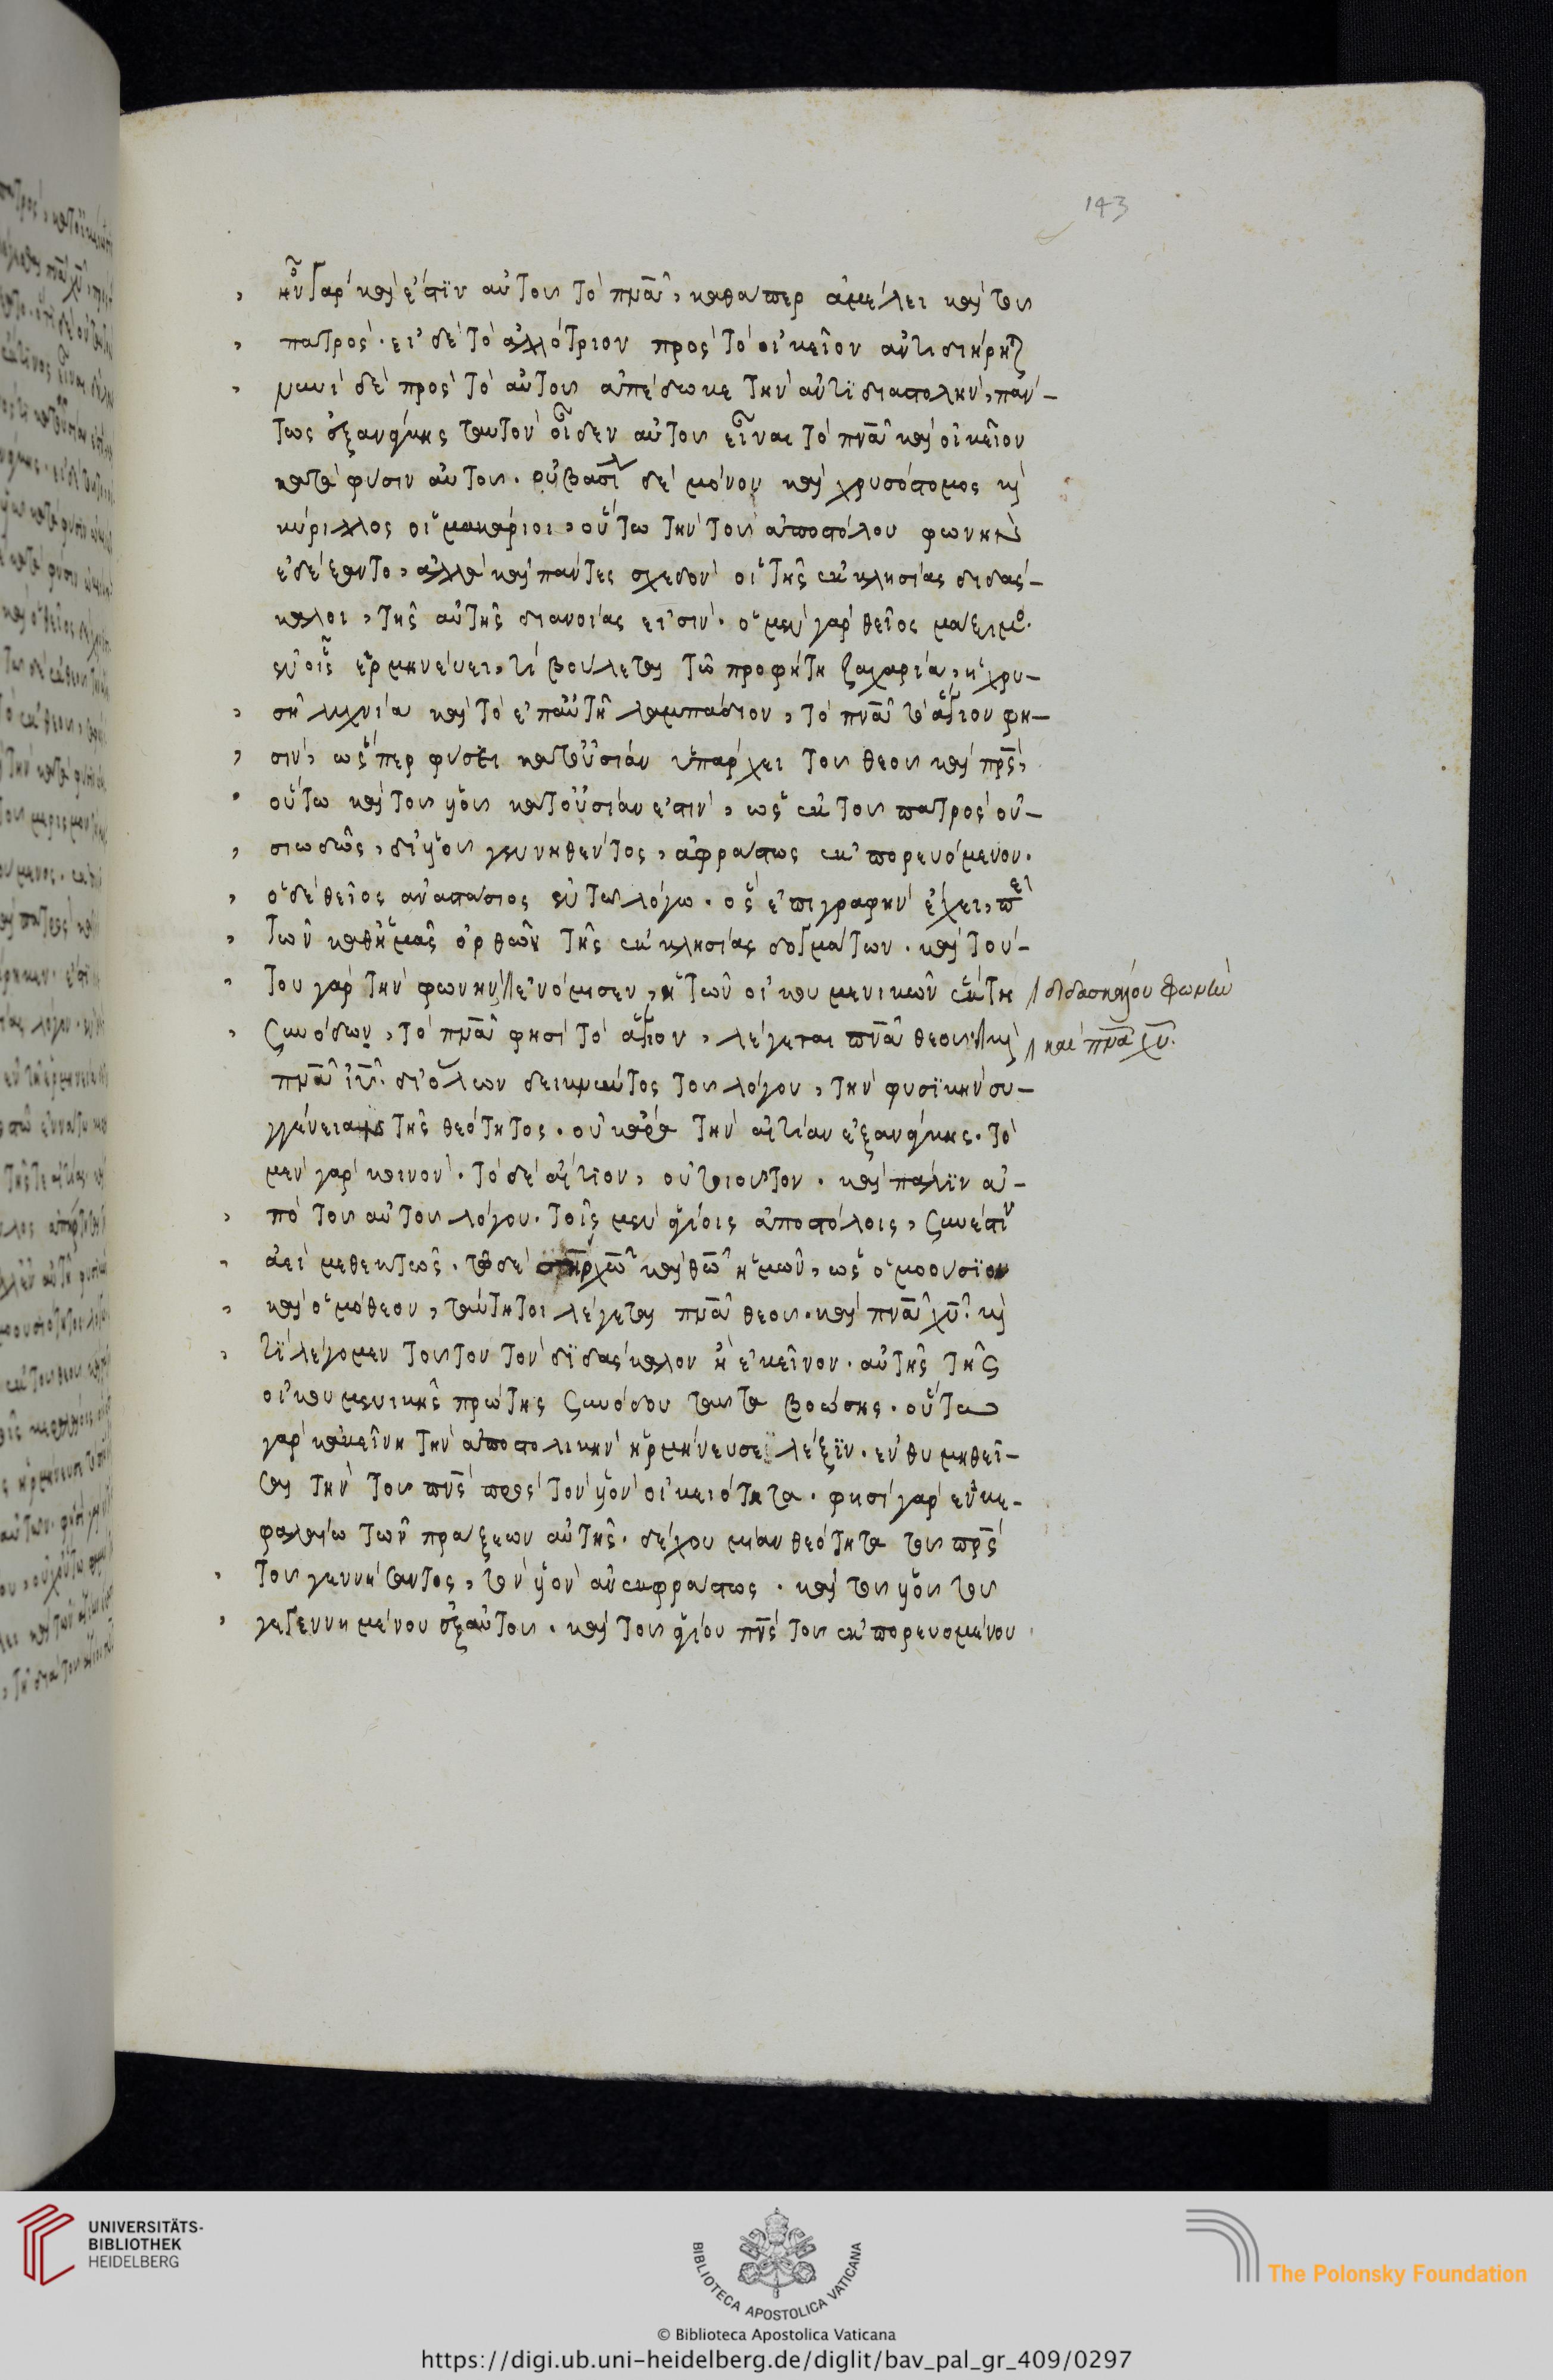 143
ἦν γὰρ καὶ ἔστιν αὐτοῦ τὸ πνᾶ, καθάπερ ἀμέλει καὶ τοῦ
πατρός. εἰ δὲ τὸ ἀλλότριον πρὸς τὸ οἰκεῖον ἀντιδιῄρητ
νυνὶ δὲ πρὸς τὸ αὐτοῦ ἀπέδωκε τὴν ἀντιδιαστολήν, πάν-
τως ἐξανάγκης ταυτὸν οἶδεν αὐτοῦ εἶναι τὸ πνᾶ καὶ οἰκεῖον
κατὰ φύσιν αὐτοῦ. οὐ βασίλ δὲ μόνον καὶ χρυσόστομος κὴ
κύριλλος οἱ μακάριοι, οὕτω τὴν τοῦ ἀποστόλου φωνὴν
ἐδέξαντο, ἀλλὰ καὶ πάντες σχεδὸν οἱ τῆς ἐκκλησίας διδάσ-
καλοι, τῆς αὐτῆς διανοίας εἰσίν. ὁ μὲν γὰρ θεῖος μάξιμο.
ἐν οἷς ἑρμηνεύει, τί βούλεται τῷ προφήτῃ ζαχαρία, ἡ χρυ-
σῆ λυχνία καὶ τὸ ἐπαὐτῆ λαμπάδιον, τὸ πνᾶ τὸ ἅγιον φη-
σίν, ὥσπερ φύσει κατοὐσίαν ὑπάρχει τοῦ θεοῦ καὶ πρς,
οὕτω καὶ τοῦ υἱοῦ κατοὐσίαν ἐστίν, ὡς ἐκ τοῦ πατρὸς οὐ-
σιωδῶς, δι' υἱοῦ γεννηθέντος, ἀφράστως ἐκπορευόμενον.
ὁ δὲ θεῖος ἀναστάσιος ἐν τῷ λόγω. ὃς ἐπιγραφὴν ἔχει, περὶ
τῶν καθἡμᾶς ὀρθῶν τῆς ἐκκλησίας δογμάτων. καὶ τού-
του γὰρ τὴν φωνὴν // ἐνόμισεν, ἡ τῶν οἰκουμενικῶν ἕκτη // διδασκάλου φωνὴν
συνόδων, τὸ πνᾶ φησὶ τὸ ἅγιον, λέγεται πνᾶ θεοῦ // κὴ // καὶ πνᾶ χῦ.
πνᾶ ἰῦ. δι' ὅλων δεικνῦντος τοῦ λόγου, τὴν φυσικὴν συ-
γγένειαν τῆς θεότητος. οὐ κατὰ τὴν αἰτίαν ἐξανάγκης. τὸ
μὲν γὰρ κοινόν. τὸ δὲ αἴτιον, οὐ τοιοῦτον. καὶ πάλιν ἀ-
πὸ τοῦ αὐτοῦ λόγου. τοῖς μὲν ἁγίοις ἀποστόλοις, σύνεστιν
ἀεὶ μεθεκτῶς. τῷ δὲ χῶ καὶ θῶ ἡμῶν, ὡς ὁμοούσιον
καὶ ὁμόθεον, ταύτητοι λέγεται πνᾶ θεοῦ. καὶ πνᾶ χῦ. κὴ
τί λέγομεν τοῦτον τὸν διδάσκαλον ἢ ἐκεῖνον. αὐτῆς τῆς
οἰκουμενικῆς πρώτης συνόδου ταῦτα βοώσης. οὕτω
γὰρ κἀκείνη τὴν ἀποστολικὴν ἡρμήνευσε λέξιν. ἐνθυμηθεῖ-
σα τὴν τοῦ πνς πρὸς τὸν υἱὸν οἰκειότητα. φησὶ γὰρ ἐν κε-
φαλαίω τῶν πράξεων αὐτῆς. δέχου μίαν θεότητα τοῦ πρς
τοῦ γεννήσαντος, τὸν υἱὸν ἀνεκφράστως. καὶ τοῦ υἱοῦ τοῦ
γεγεννημένου ἐξαὐτοῦ. καὶ τοῦ ἁγίου πνς τοῦ ἐκπορευομένου
UNIVERSITÄTS-
BIBLIOTHEK
HEIDELBERG
BIBLIOTECA APOSTOLICA VATICANA
The Polonsky Foundation
© Biblioteca Apostolica Vaticana
https://digi.ub.uni-heidelberg.de/diglit/bav_pal_gr_409/0297